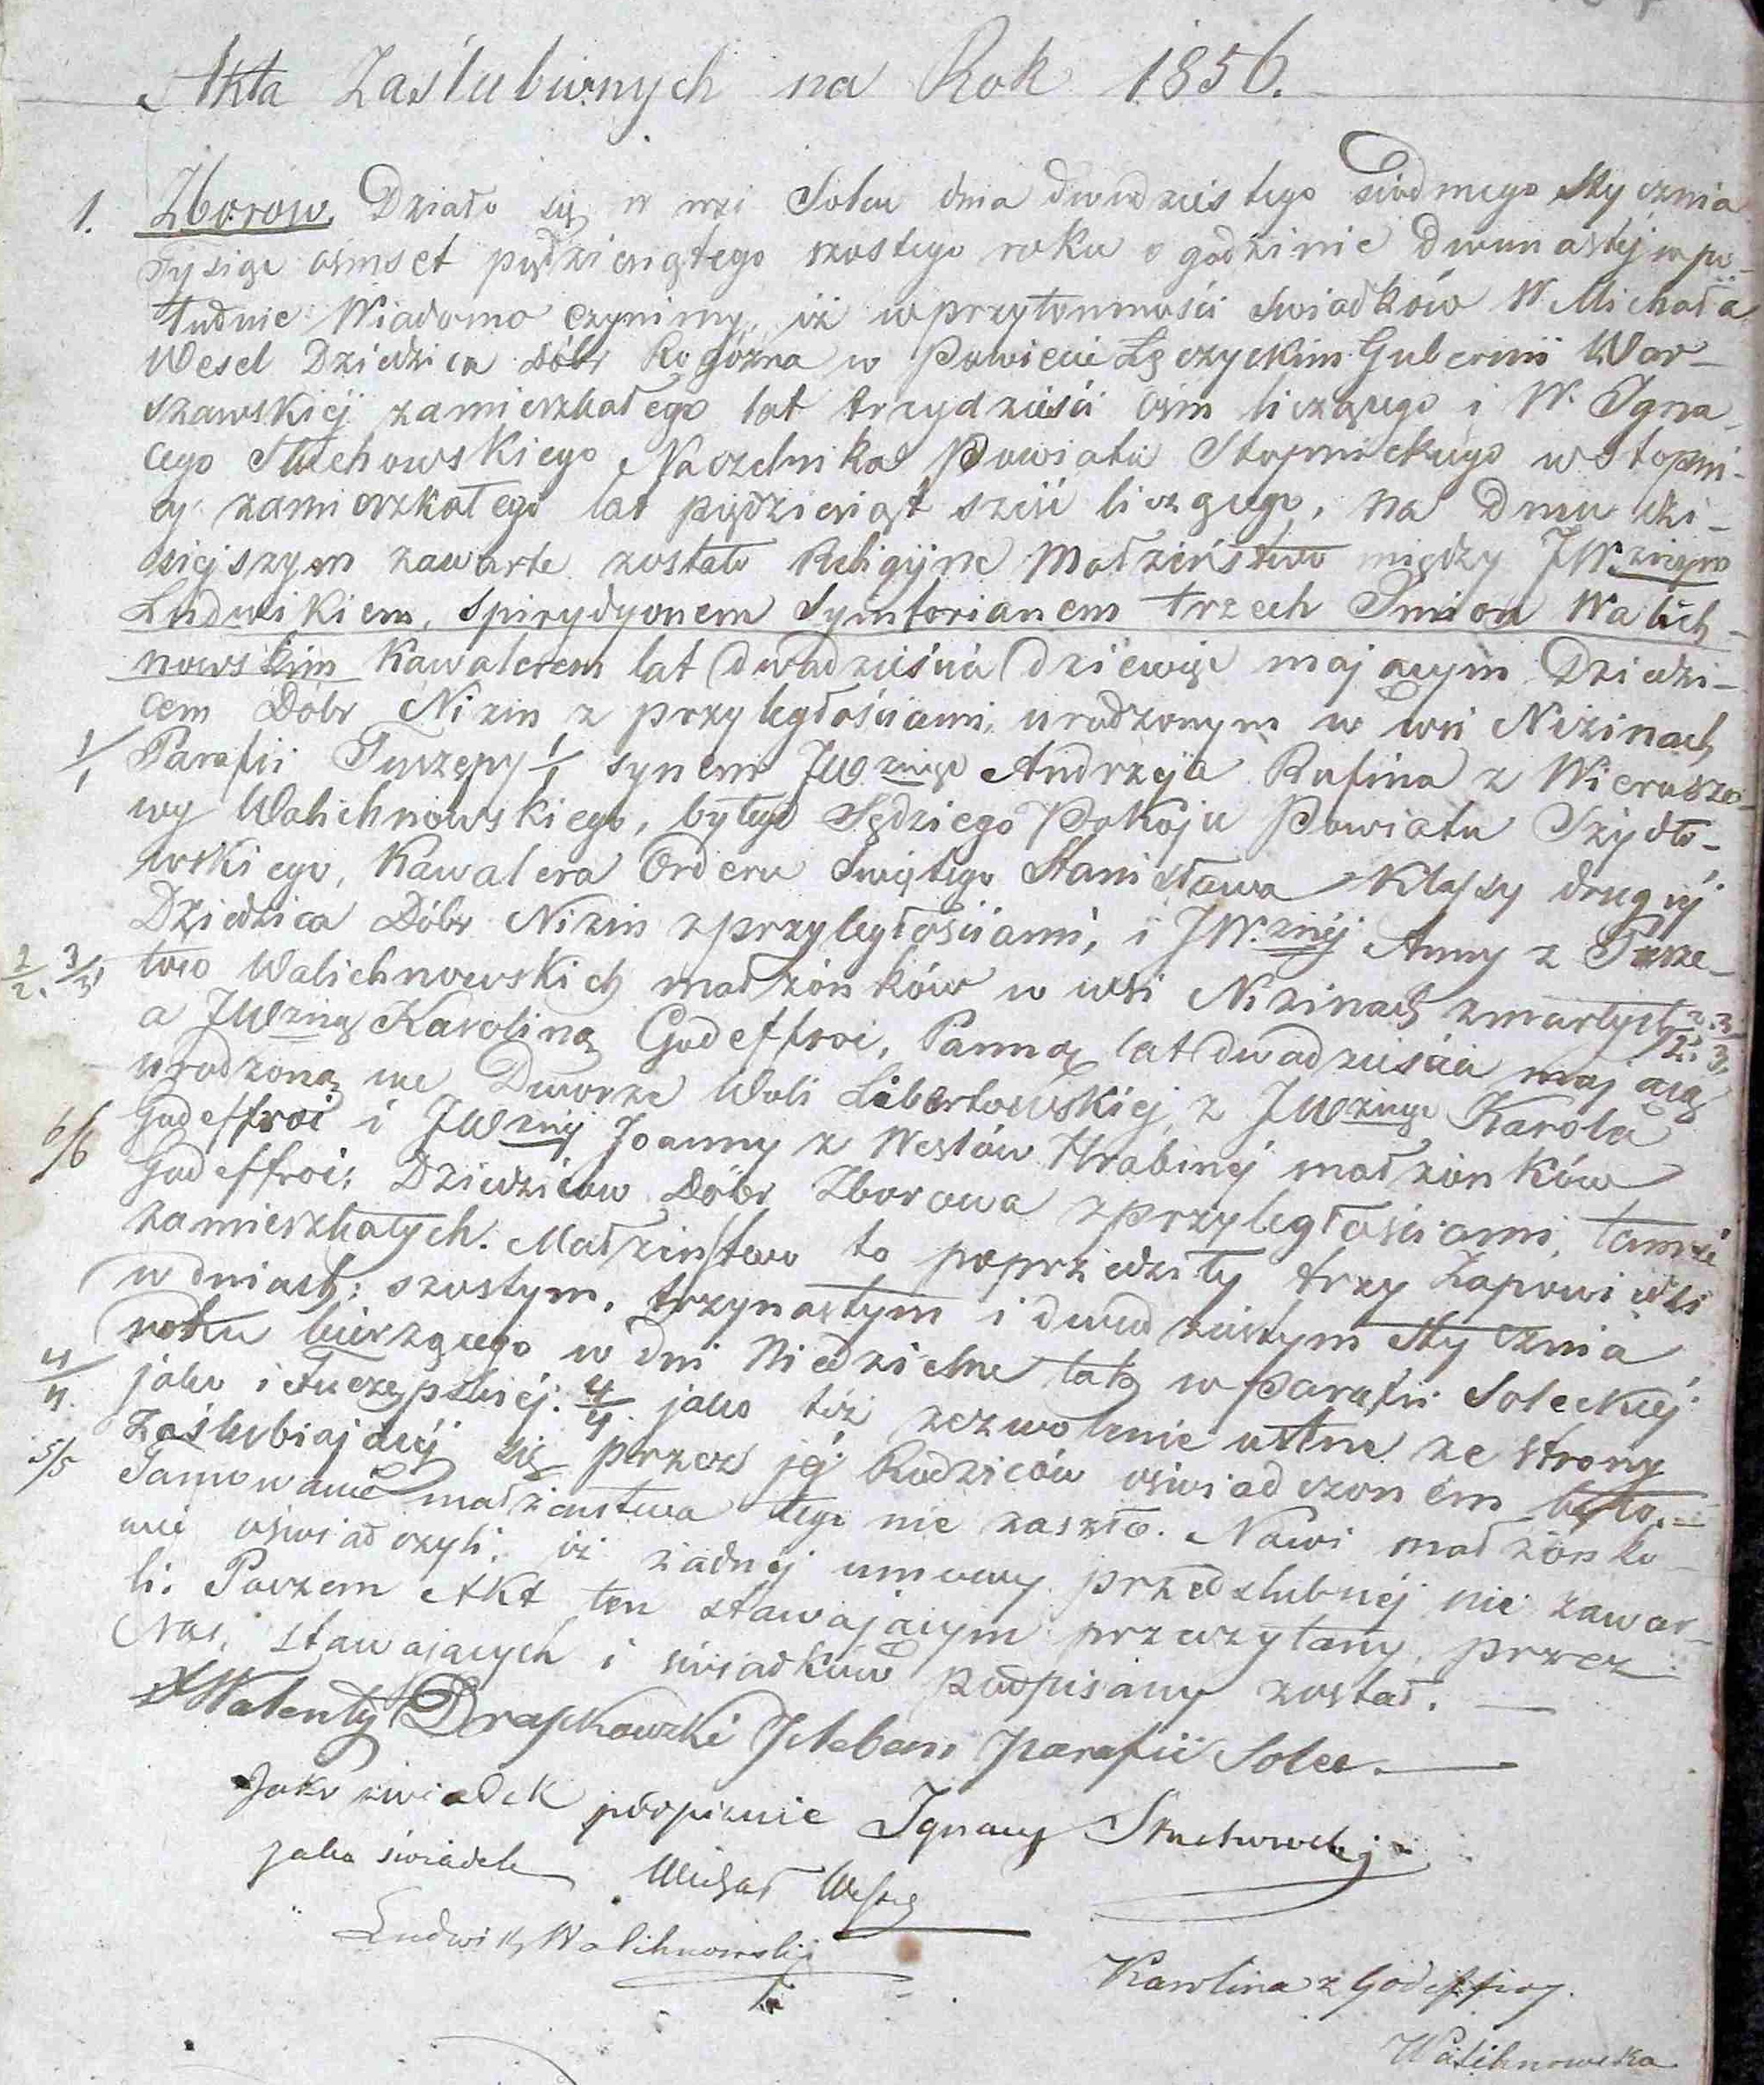 Akta Zaślubionych na Rok 1856.
1. Zborow. Działo się w wsi Solcu dnia dwudziestego siódmego Stycznia
Tysiąc ośmset pięćdziesiątego szostego roku o godzinie dwunastej w po-
łudnie Wiadomo czynimy, iż w przytomności Swiadków W. Michała
Wesel Dziedzica Dóbr Rogózna w Powiecie Łęczyckim Gubernii War-
szawskiéj zamieszkałego lat trzydzieści ośm liczącego i W. Igna-
cego Stuchowskiego Naczelnika Powiatu Stopnickiego w Stopni-
cy zamieszkałego lat pięćdziesiąt sześć liczącego, na dniu dzi-
siejszym zawarte zostało Religijne Małżeństwo między JW.żnym
Ludwikiem, Spirydyonem Symforianem trzech Imion Walich-
nowskim Kawalerem lat dwadzieścia dziewięć mającym Dziedzi-
cem Dóbr Nizin z przyległościami, urodzonym w wsi Nizinach
1/1 Parafii Tuczępy 1/1 synem JWżnego Andrzeja Rufina z Wieruszo-
wy Walichnowskiego, byłego Sędziego Pokoju Powiatu Szydło-
wskiego, Kawalera Orderu Swiętego Stanisława Klassy drugiéj
Dziedzica Dóbr Nizin z przyległościami, i JW.żnéj Anny z Tusze-
2/2. 3/3 tow Walichnowskich małżonków w wsi Nizinach zmarłych 2/2. 3/3
a JWżną Karoliną Godeffroi, Panną lat dwadzieścia mającą
urodzoną we Dworze Woli Libertowskiéj, z JWżnego Karola
6/6 Godeffroi i JWżnéj Joanny z Weslów Hrabinéj małżonków
Godeffroi, Dziedziców Dóbr Zborowa z przyległościami, tamże
zamieszkałych. Małżeństwo to poprzedziły trzy Zapowiedzi
w dniach: szostym, trzynastym i dwudziestym Stycznia
roku bieżącego w dni Niedzielne tak w Parafii Soleckiéj
4/4. jako i Tuczępskiéj. 4/4. jako też zezwolenie ustne ze strony
Zaślubiającéj się przez jéj Rodziców oświadczoném było.
5/5 Tamowanie małżenstwa tego nie zaszło. Nowi małżonko-
wie oświadczyli, iż żadnéj umowy przedslubnéj nie zawar-
li. Poczem Akt ten stawającym przeczytany, przez
Nas, stawających i świadków podpisany został.
X Walenty Drapkowski Pleban Parafii Solec.
Jako świadek podpisuie Ignacy Stuchowski
jako świadek Michał Wessel
Ludwik Walichnowski
Karolina z Godeffroy.
Walichnowska